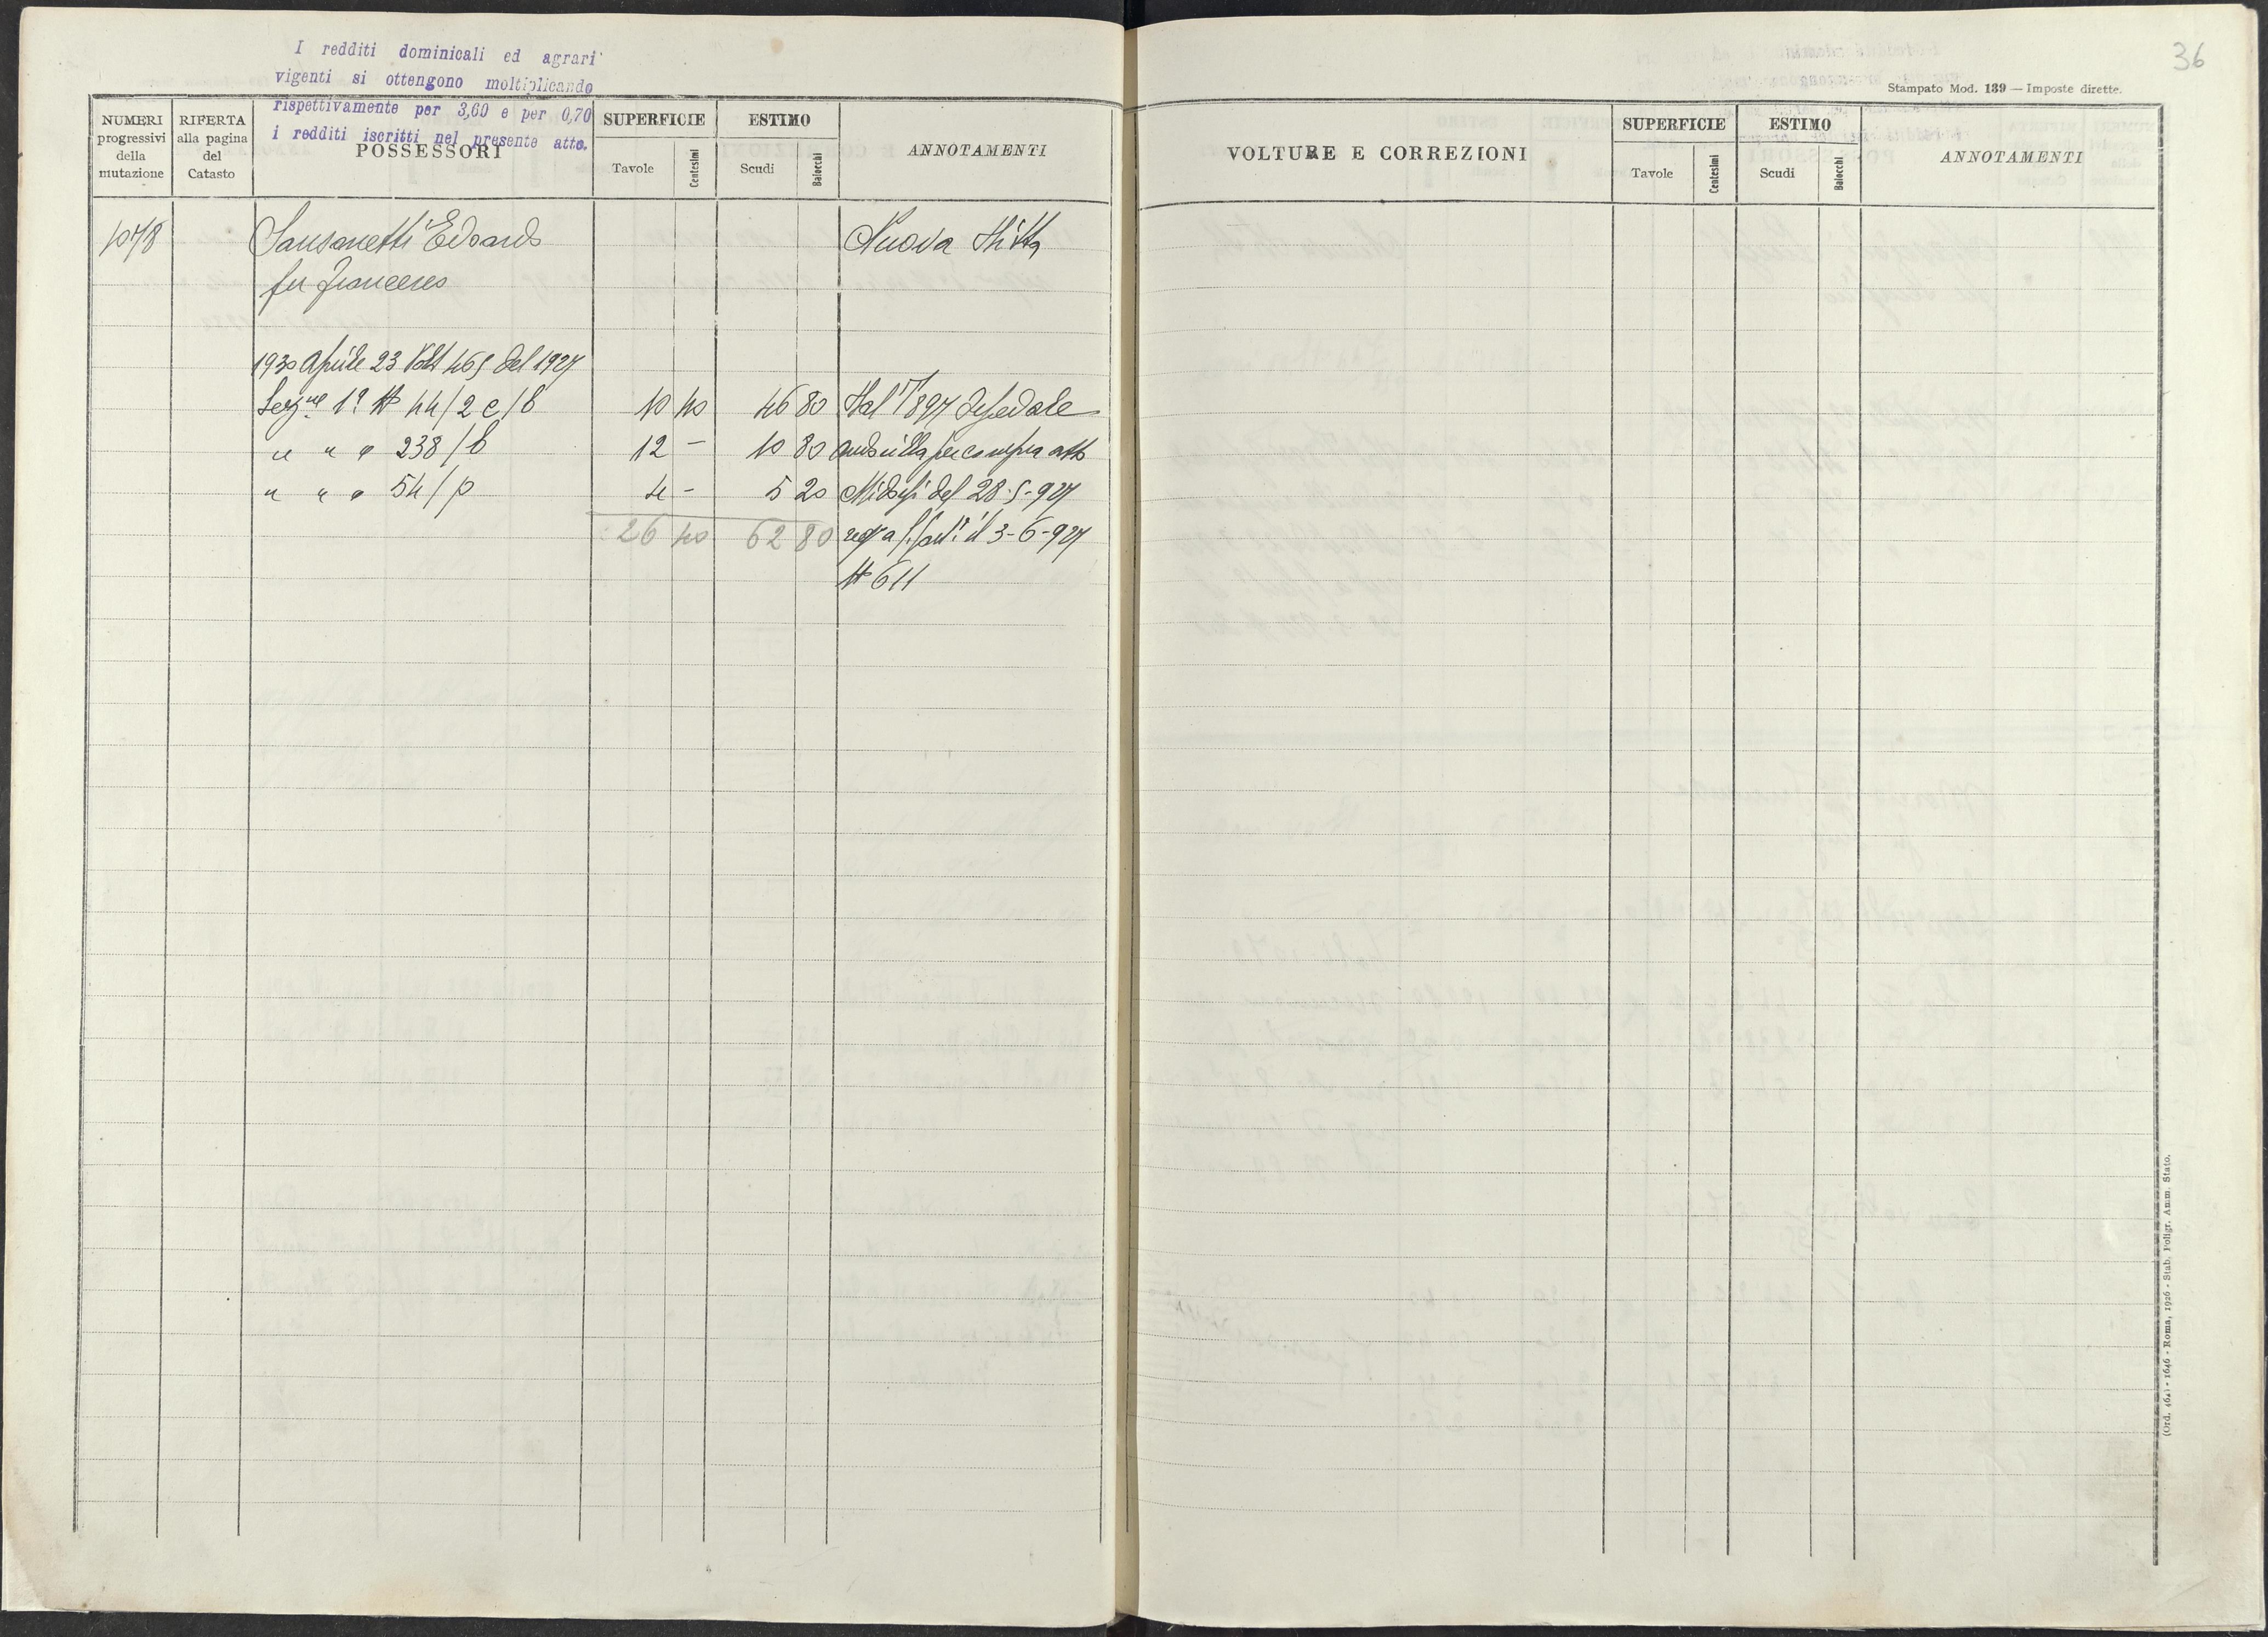 I redditi dominicali ed agrari
vigenti si ottengono moltiplicando
rispettivamente per 3,60 e per 0,70
i redditi iscritti nel presente atto.
NUMERI
progressivi
della
mutazione
RIFERTA
alla pagina
del
Catasto
POSSESSORI
SUPERFICIE
Tavole
Centesimi
ESTIMO
Scudi
Baiocchi
ANNOTAMENTI
1078 Sansonetti Edoardo Nuova Ditta
fu Francesco
1930 Aprile 23 Volt 465 del 1927
Sez.ne 1ª N 44/2 c/b 10 40 46 80 Dal
" " " 238/b 12 - 10 80 per compra atto
" " " 54/p 4 - 5 20 del 28-5-927
26 40 62 80 il 3-6-927
N 611
36
Stampato Mod. 139 — Imposte dirette.
VOLTURE E CORREZIONI
SUPERFICIE
Tavole
Centesimi
ESTIMO
Scudi
Baiocchi
ANNOTAMENTI
(Ord. 462) - 1646 - Roma, 1926 - Stab. Poligr. Amm. Stato.